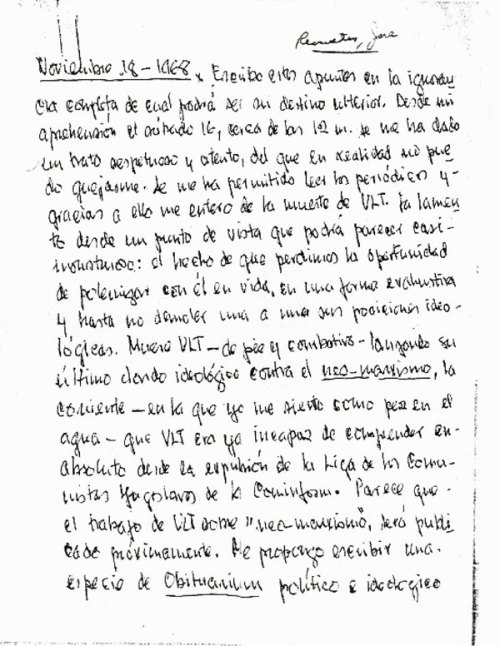 Revueltas, José
Noviembre 18-1968. Escribo estos apuntes en la ignoran
cia completa de cual podrá ser mi destino ulterior. Desde mi
aprehensión el sábado 16, cerca de las 12 m. se me ha dado
un trato respetuoso y atento, del que en realidad no pue
do quejarme. Se me ha permitido leer los periódicos y-
gracias a ello me entero de la muerte de VLT. La lamen
to desde un punto de vista que podría parecer casi-
monstruoso: el hecho de que perdimos la oportunidad
de polemizar con él en vida, en una forma exhaustiva
y hasta no demoler una a una sus posiciones ideo-
lógicas. Muere VLT - de pie y combativo - lanzando su
último dardo ideológico contra el neo-marxismo, la
corriente - en la que yo me siento como pez en el
agua - que VLT era ya incapaz de comprender en-
absoluto desde la expulsión de la Liga de los Comu-
nistas Yugoslavos de la Cominform. Parece que-
el trabajo de VLT sobre "neo-marxismo", será publi
cado próximamente. Me propongo escribir una-
especie de Obituarium político e ideológico